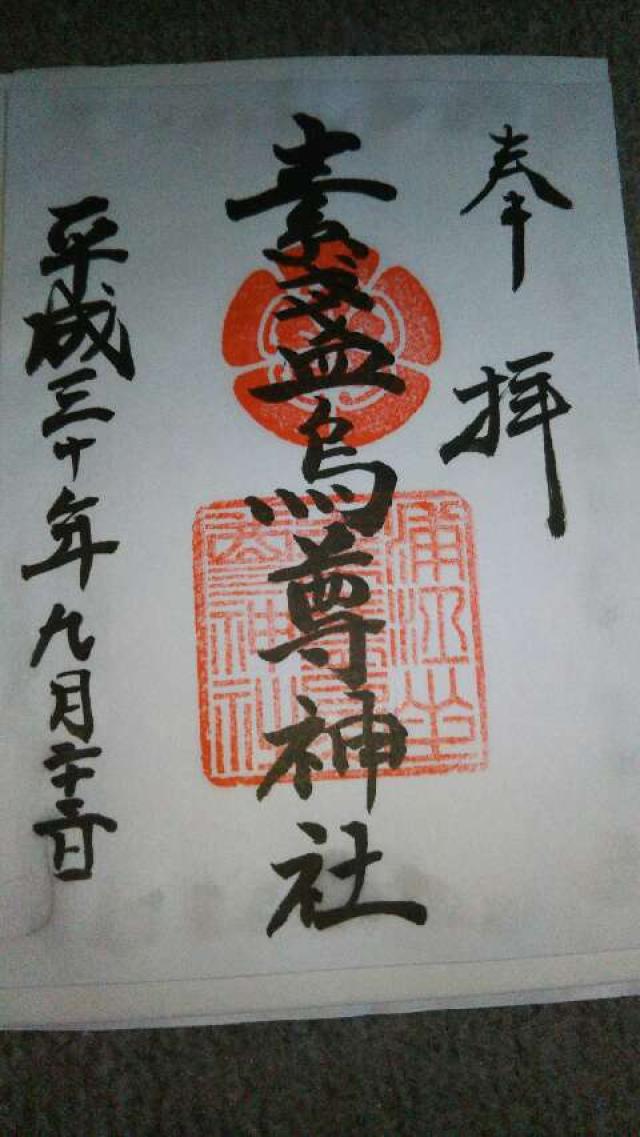 奉拝
素盞烏尊神社
平成三十年九月二十三日
浦江坐